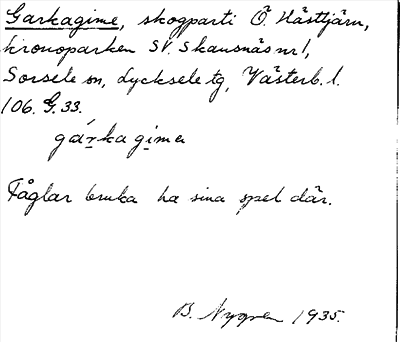 Garkagime, skogparti Ö Hästtjärn,
kronoparken SV. Skansnäs nr 1,
Sorsele sn, Lycksele tg, Västerb. l.
106. G. 33.
gárkagimɐ
Fåglar bruka ha sina spel där.
B. Nygren 1935.